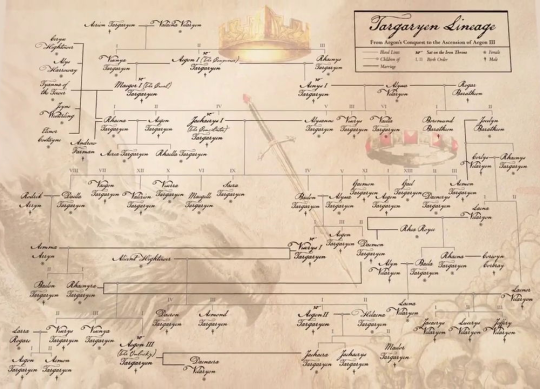 Targaryen Lineage
From Aegon's Conquest to the Ascension of Aegon III
Blood Line
Sat on the Iron Throne
Female
Children of
Birth Order
Male
Marriage
Aerion Targaryen
Valaena Velaryon
Ceryse Hightower
Alys Harroway
Tyanna of the Tower
Jeyne Westerling
Elinor Costayne
Visenya Targaryen
Aegon I (the Conqueror) Targaryen
Rhaenys Targaryen
Maegor I (the Cruel) Targaryen
Aenys I Targaryen
Alyssa Velaryon
Rogar Baratheon
Andrew Farman
Rhaena Targaryen
Aegon Targaryen
Jaehaerys I Targaryen
Alysanne Targaryen
Viserys Targaryen
Vaella Targaryen
Boremund Baratheon
Jocelyn Baratheon
Aerea Targaryen
Rhaella Targaryen
Corlys Velaryon
Rhaenys Targaryen
Rodrik Arryn
Daella Targaryen
Vaegon Targaryen
Valerion Targaryen
Viserra Targaryen
Maegelle Targaryen
Saera Targaryen
Baelon Targaryen
Alyssa Targaryen
Gaemon Targaryen
Gael Targaryen
Daenerys Targaryen
Aemon Targaryen
Laena Velaryon
Rhea Royce
Aemma Arryn
Alicent Hightower
Viserys I Targaryen
Aegon Targaryen
Daemon Targaryen
Alyn Velaryon
Baela Targaryen
Rhaena Targaryen
Corwyn Corbray
Baelon Targaryen
Rhaenyra Targaryen
Laenor Velaryon
Larra Rogare
Viserys Targaryen
Visenya Targaryen
Daeron Targaryen
Aemond Targaryen
Aegon II Targaryen
Helaena Targaryen
Jacaerys Velaryon
Lucerys Velaryon
Joffrey Velaryon
Aegon Targaryen
Aemon Targaryen
Aegon III Targaryen
Daenaera Velaryon
Jaehaera Targaryen
Jaehaerys Targaryen
Maelor Targaryen